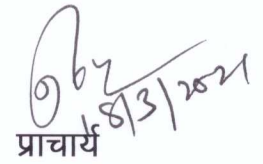 8/3/2021
प्राचार्य